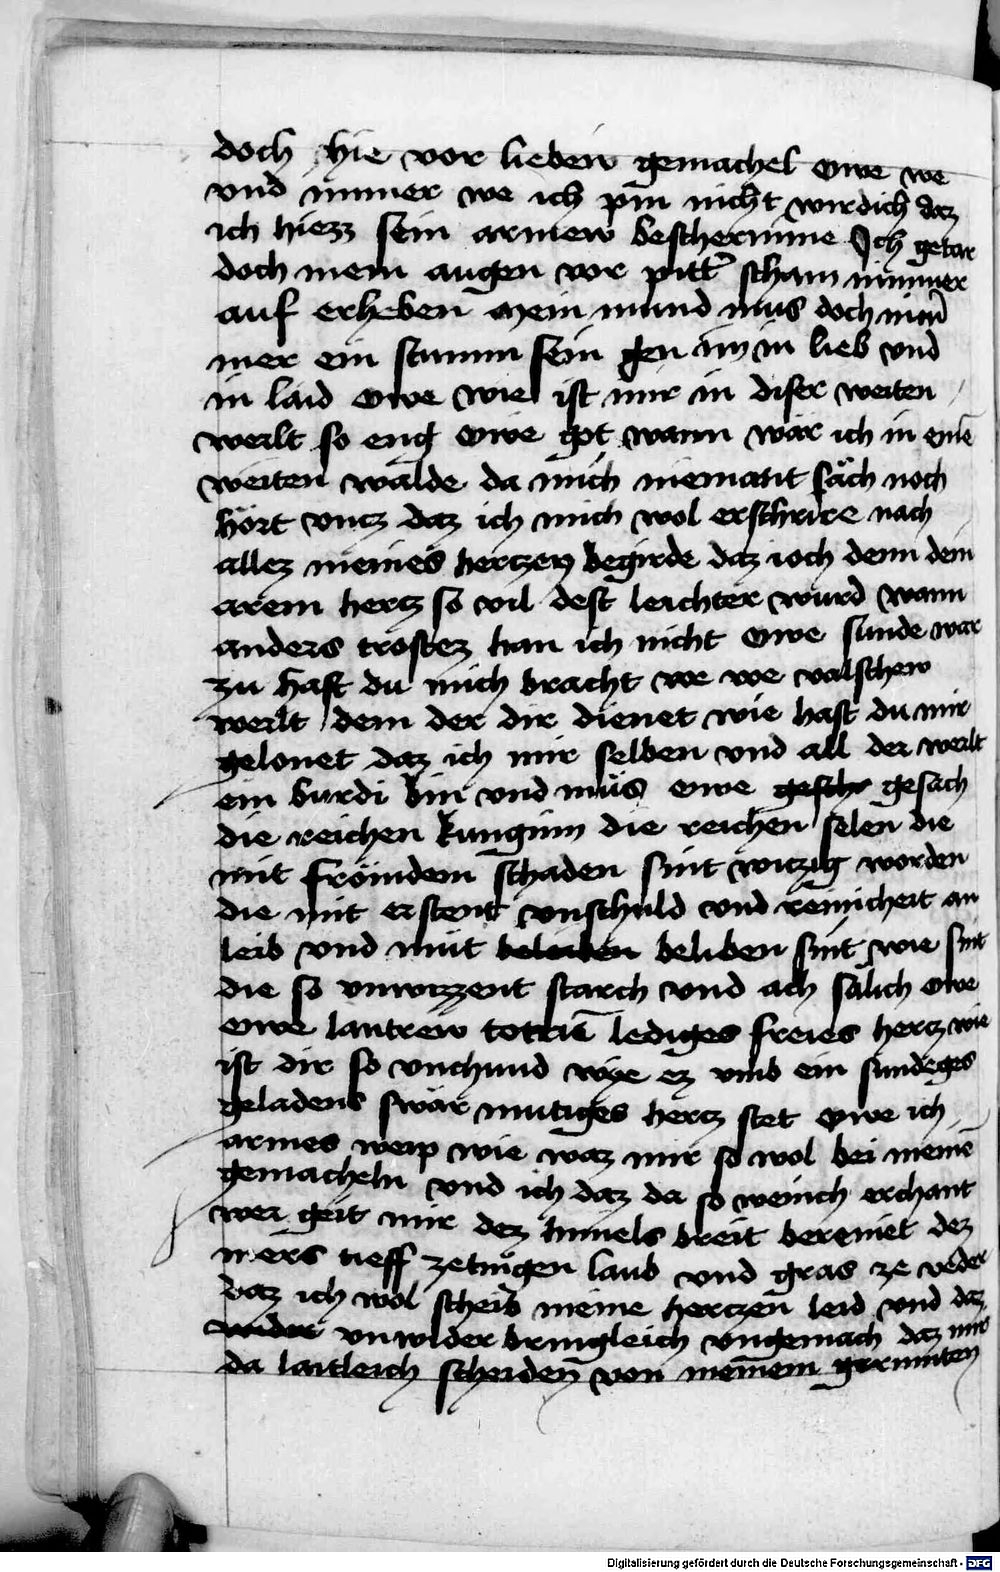 doch hie vor lieben gemachel owe we
vnd immer we ich pin nicht wirdich daz
ich hiezz sein armew beschermine Ich getar
doch mein augen vor pitt' scham nimmer
auf erheben mein mund mus doch nim̄
mer ein stumm sein gen im in lieb vnd
in laid owe wie ist mir in diser weiten
werlt so eng owe got wann wär ich in eine͂
weiten walde da mich niemant säch noch
hört vncz daz ich mich wol erschrire nach
allez meines herczen begirde daz ioch dem dein
arem hercz so vil dest leichter wurd wann
anders trostez han ich nicht owe sunde war
zu hast du mich bracht we we valschew
werlt dem der dir dienet wie hast du mir
gelonet daz ich mir selben vnd all der werlt
ein burdi bin vnd müs owe geschr gesach
die reichen kunginn die reichen selen die
mit frömdem schaden sint wiczig worden
die mit ersteur vnschuld vnd reinicheit an
leib vnd mut beleiben beliben sint wie sint
die so vnwizzent starch vnd ach sälich owe
owe lautrew lediges freies hercz wie
ist dir so vnchund wye ez vmb ein sundeges
geladens swär mutiges hercz stet owe ich
armes weip wie waz mir so wol bei meine͂
gemacheln vnd ich daz da so wenich erchant
wer geit mir dez himels breit bermiet dez
mers tieff ze tuͤgen laub vnd gras ze veder
daz ich wol scheib meine herczen leid vnd daz
wider vnwider bringleich vngemach daz mir
da laitleich scheiden von meine͂m gemintten